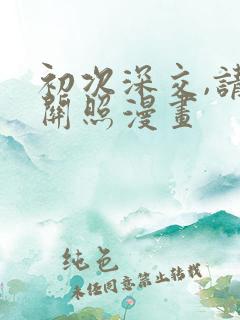 初次深交,請
關照漫畫
纯色
未经同意禁止转载